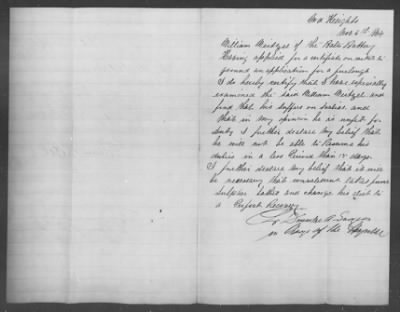 Heights
Nov 6th 1864
William Mentzel of the Balto Battery
Having applied for a certificate on which to
ground an application for a furlough
I do hereby certify that I have carefully
examined the said William Mentzel and
find that he suffers and
that in my opinion he is unfit for
duty I further declare my belief that
he will not be able to resume his
duties in a less period than 15 days.
I further declare my belief that it will
be necessary that
sulphur baths and change his diet to
a Perfect Recovery
Surgeon
in charge of the Hospital